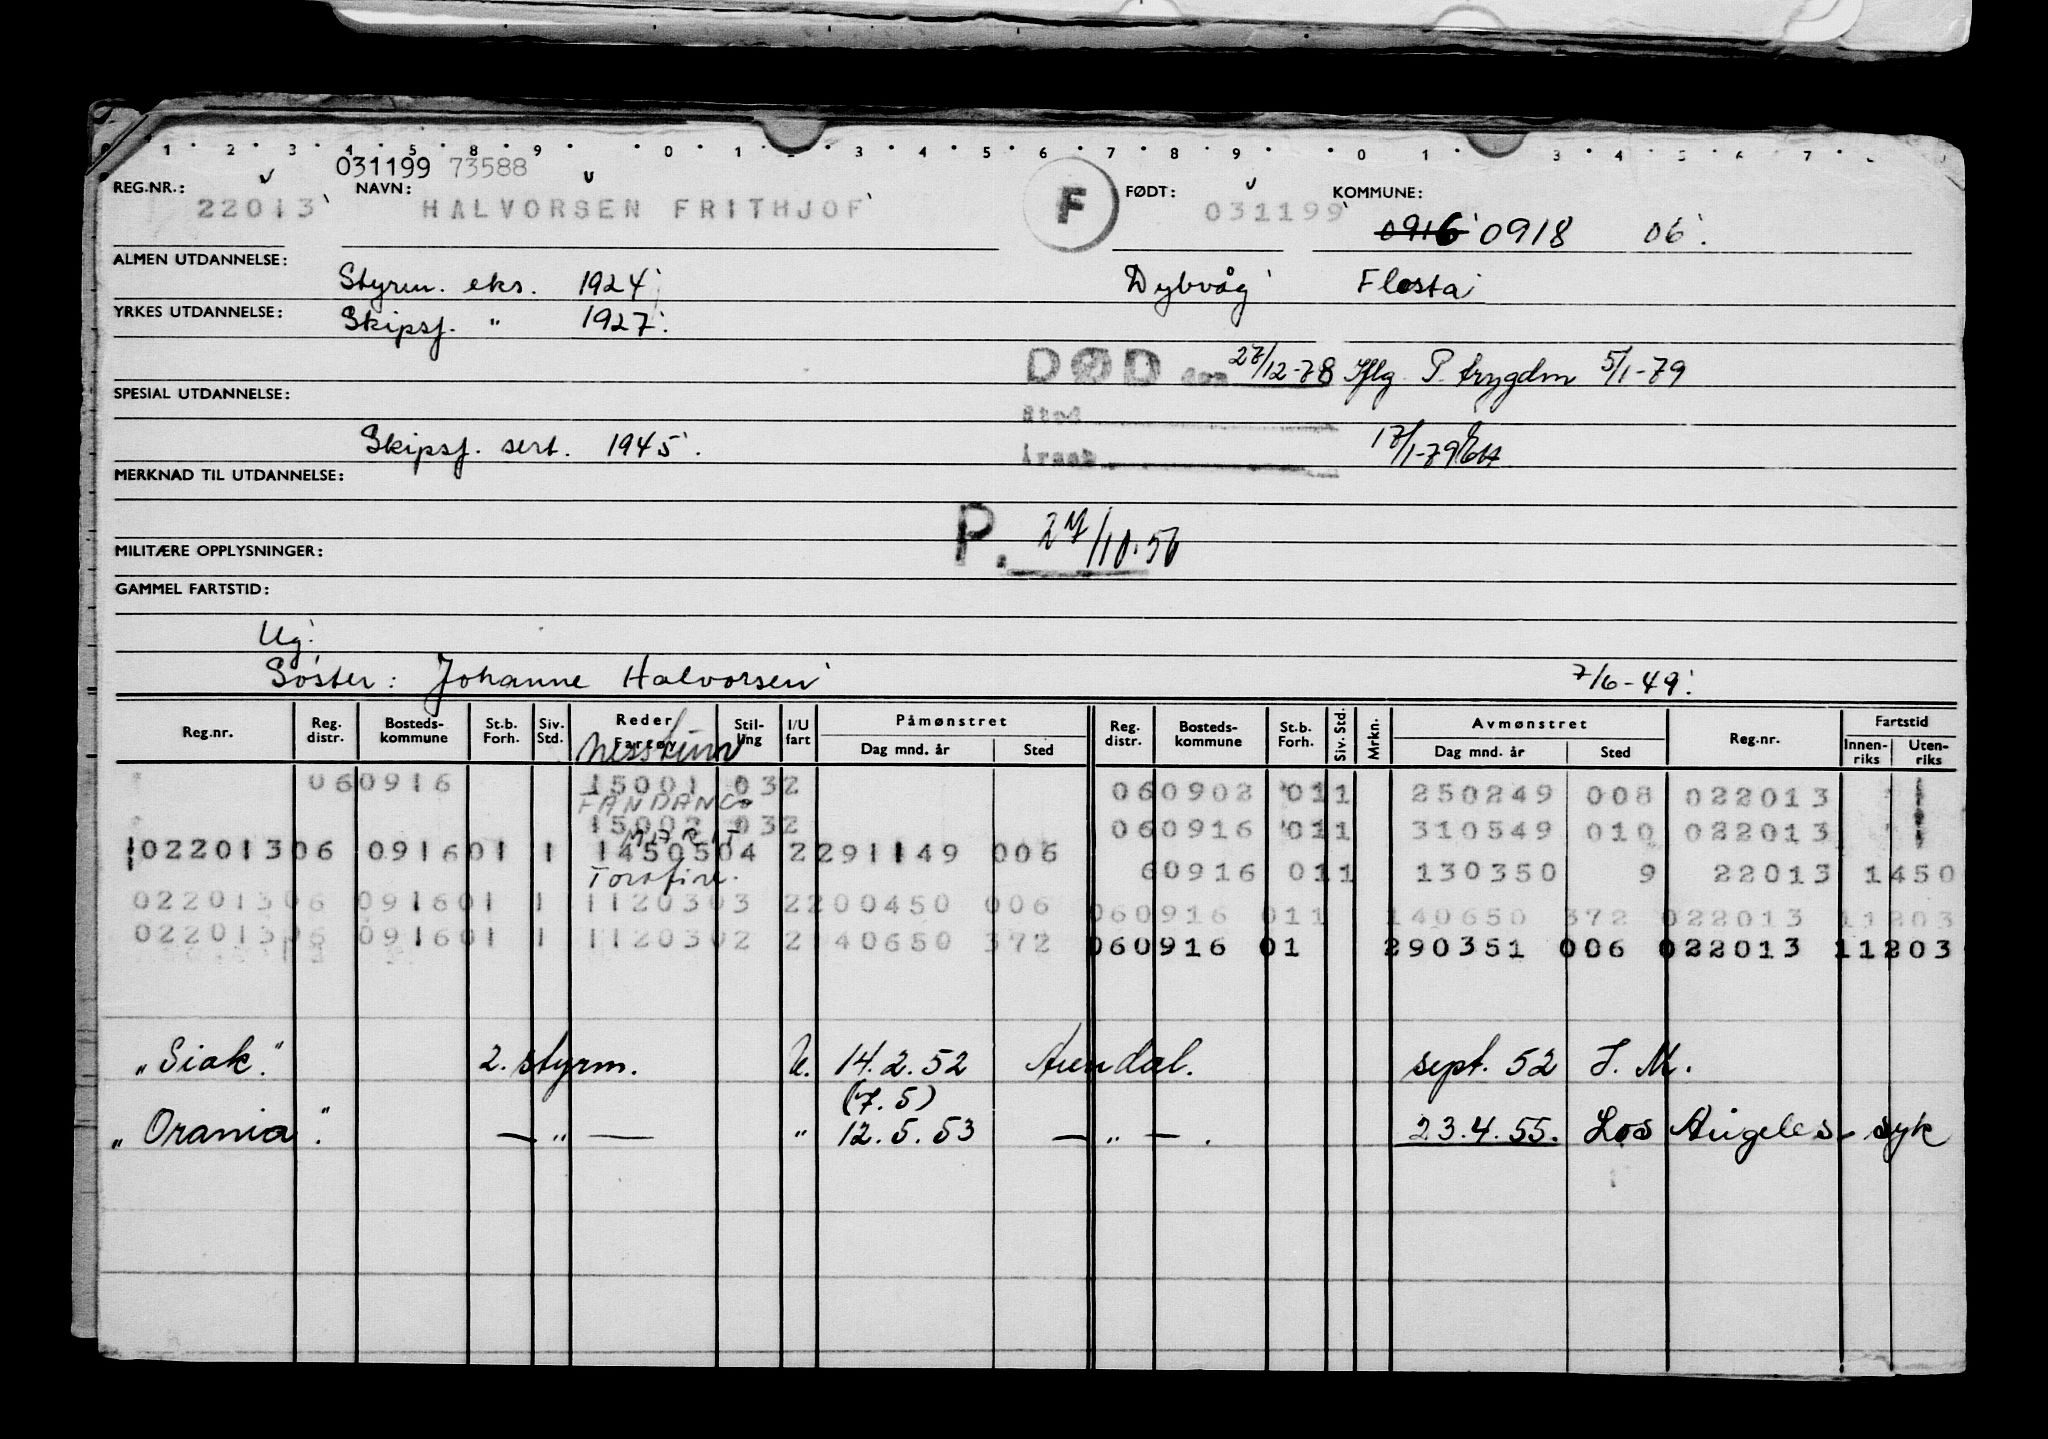 1 2 3 4 5 8 9 0 1 2 3 4 5 6 7 8 9 0 1 3 4 5 6 7
031199 73588
REG.NR.: NAVN: FØDT: KOMMUNE:
22013 HALVORSEN FRITHJOF F 031199
0916 0918 06
ALMEN UTDANNELSE:
Styrm. eks. 1924 Dybvåg Flosta
YRKES UTDANNELSE:
Skipsf. " 1927.
DØD den 27/12-78 Iflg. P. trygdm 5/1-79
SPESIAL UTDANNELSE:
Sted
Skipsf. sert. 1945. 17/1-79
Årsak
MERKNAD TIL UTDANNELSE:
P. 27/10.56
MILITÆRE OPPLYSNINGER:
GAMMEL FARTSTID:
Ug.
Søster: Johanne Halvorsen 7/6-49.
Reg.nr. Reg. distr. Bosteds-kommune St.b. Forh. Siv. Std. Reder Fartøy Stil-ling I/U fart Påmønstret Dag mnd. år Sted Reg. distr. Bosteds-kommune St.b. Forh. Siv. Std. Mrkn. Avmønstret Dag mnd. år Sted Reg.nr. Fartstid Innen-riks Uten-riks
060916 15001 032 060902 011 250249 008 022013
FANDANGO
15002 032 060916 011 310549 010 022013
MARIT
022013 06 091601 1 1450504 2 291149 006 60916 011 130350 9 22013 1450
Torafire.
022013 06 091601 1 1120303 2 200450 006 060916 011 140650 372 022013 11203
022013 06 091601 1 1120302 2 140650 372 060916 01 290351 006 022013 11203
"Siak." 2. styrm. U. 14.2.52 Arendal. sept. 52 T. M.
(7.5)
"Orania". — " — " 12.5.53 — " — . 23.4.55. Los Angeles - syk